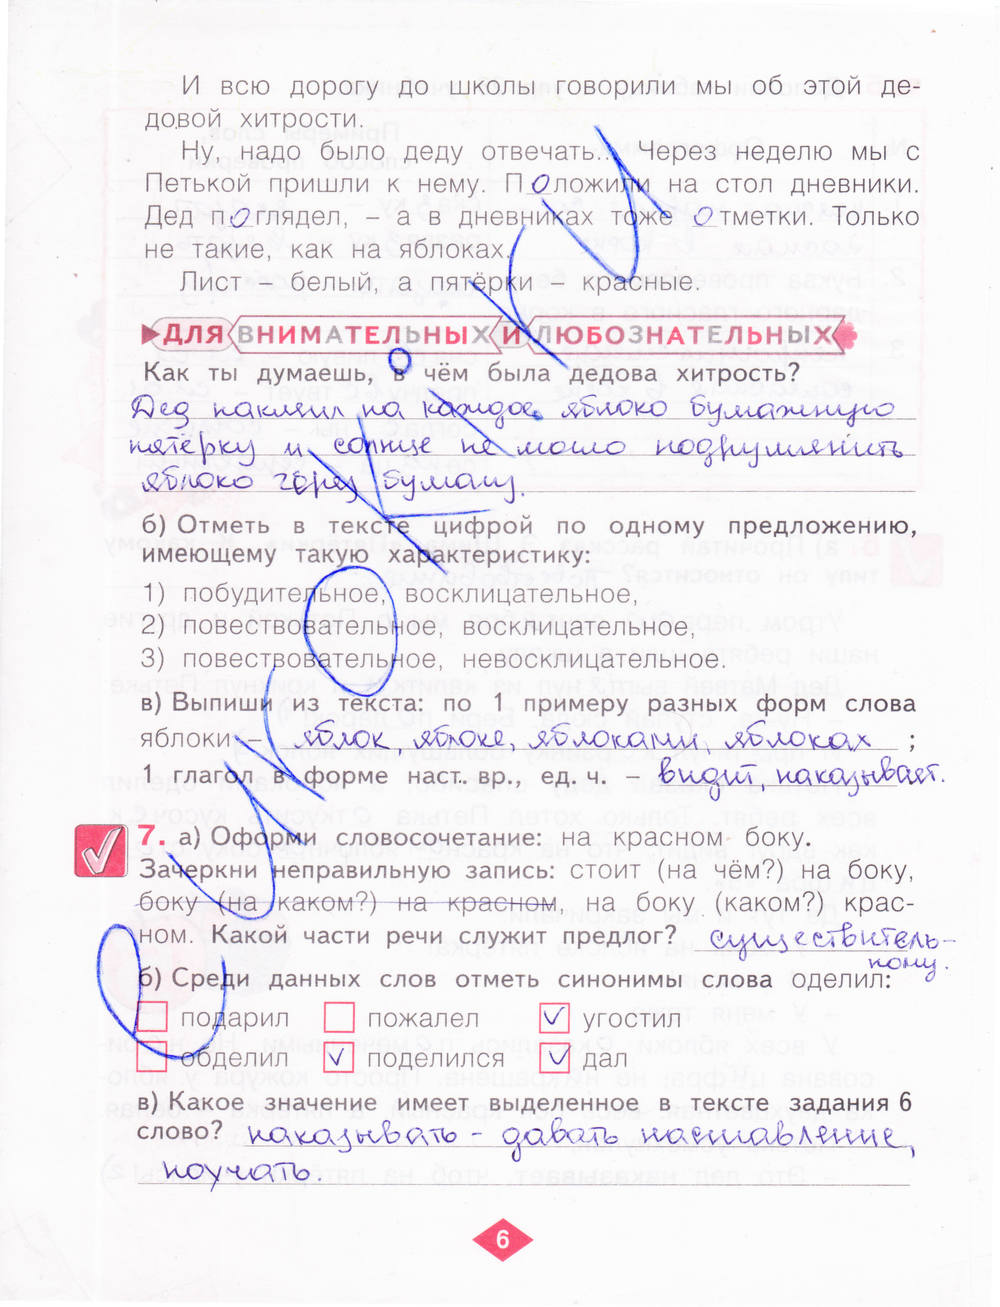 И всю дорогу до школы говорили мы об этой де-
довой хитрости.
Ну, надо было деду отвечать... Через неделю мы с
Петькой пришли к нему. Положили на стол дневники.
Дед поглядел, – а в дневниках тоже отметки. Только
не такие, как на яблоках.
Лист – белый, а пятёрки – красные.
ДЛЯ ВНИМАТЕЛЬНЫХ И ЛЮБОЗНАТЕЛЬНЫХ
Как ты думаешь, в чём была дедова хитрость?
Дед наклеил на каждое яблоко бумажную
пятёрку и солнце не могло подрумянить
яблоко через бумагу.
б) Отметь в тексте цифрой по одному предложению,
имеющему такую характеристику:
1) побудительное, восклицательное,
2) повествовательное, восклицательное,
3) повествовательное, невосклицательное.
в) Выпиши из текста: по 1 примеру разных форм слова
яблоки – яблок, яблоке, яблоками, яблоках ;
1 глагол в форме наст. вр., ед. ч. – видит, наказывает.
7. а) Оформи словосочетание: на красном боку.
Зачеркни неправильную запись: стоит (на чём?) на боку,
боку (на каком?) на красном, на боку (каком?) крас-
ном. Какой части речи служит предлог? существитель-
ному.
б) Среди данных слов отметь синонимы слова оделил:
подарил пожалел ✓ угостил
обделил ✓ поделился ✓ дал
в) Какое значение имеет выделенное в тексте задания 6
слово? наказывать – давать наставление,
поучать.
6